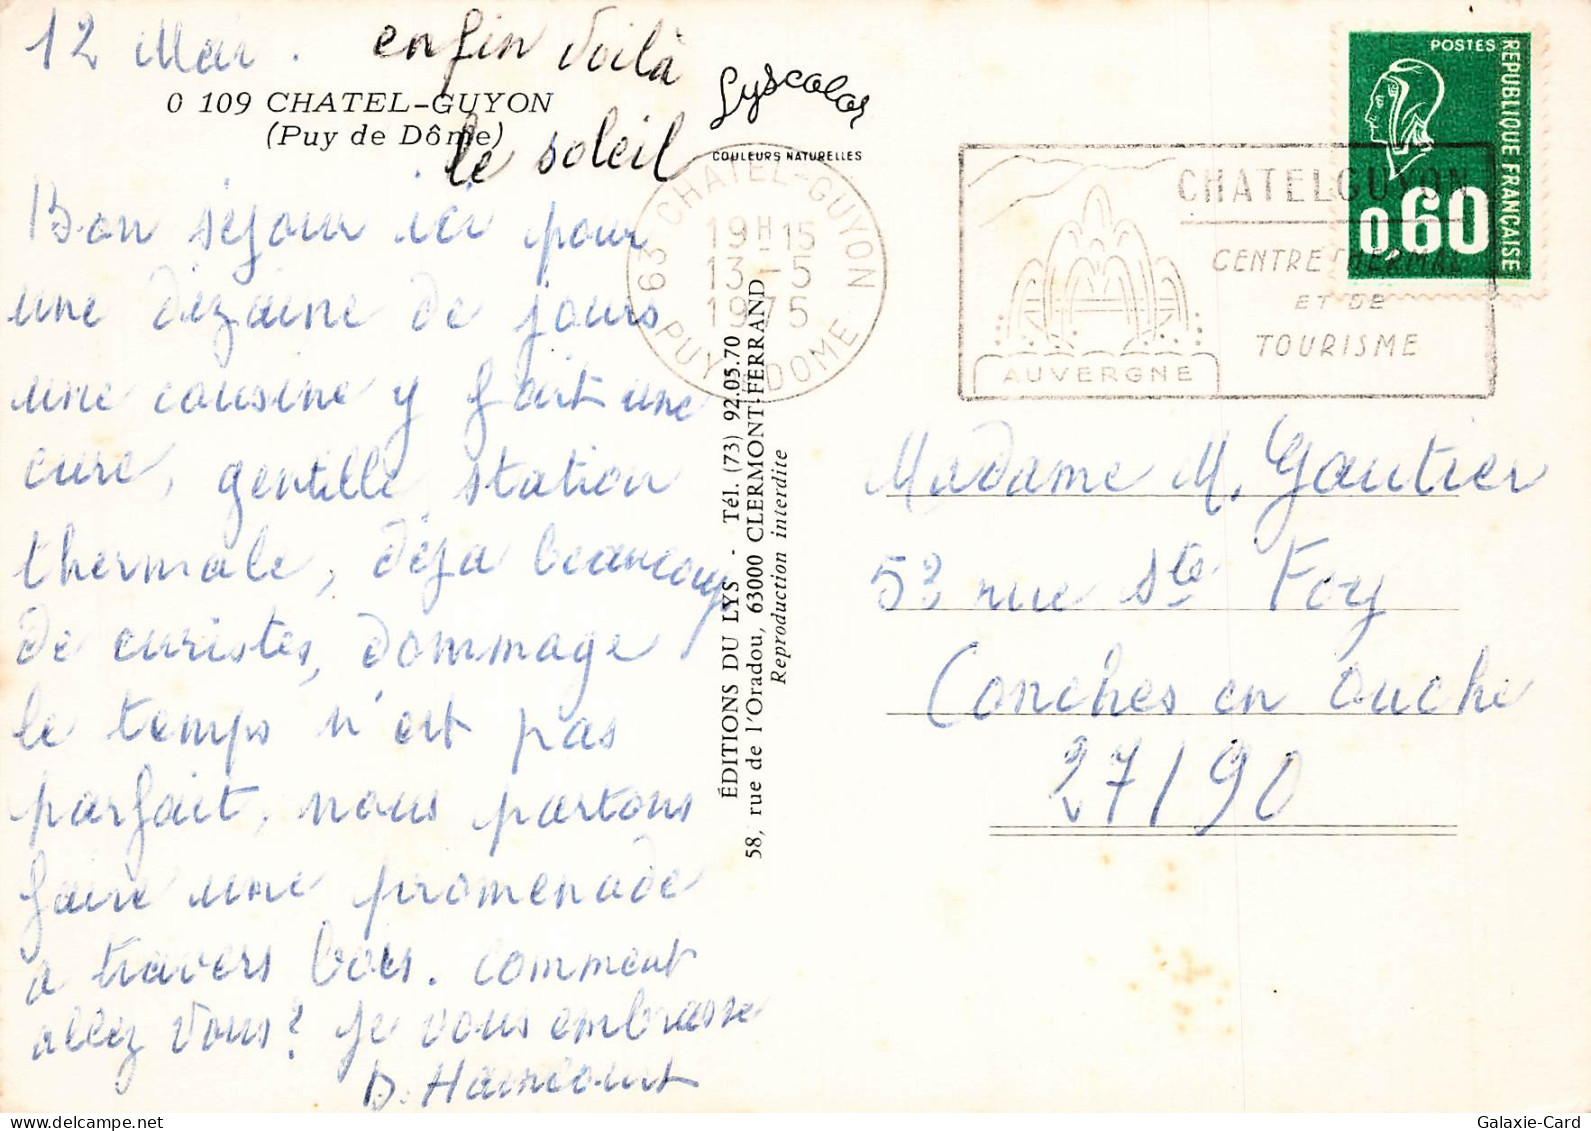 12 Mai.
enfin voilà
le soleil
0 109 CHATEL-GUYON
(Puy de Dôme)
Bon séjour ici pour
une dizaine de jours
une cousine y fait une
cure, gentille station
thermale, déja beaucoup
de curistes, dommage
le temps n'est pas
parfait, nous partons
faire une promenade
a travers bois. comment
allez vous? je vous embrasse
D. Haincourt
Lyscolor
COULEURS NATURELLES
ÉDITIONS DU LYS - Tél. (73) 92.05.70
58, rue de l'Oradou, 63000 CLERMONT-FERRAND
Reproduction interdite
63 CHATEL-GUYON
19H15
13-5
1975
PUY DE DOME
CHATELGUYON
CENTRE THERMAL
ET DE
TOURISME
AUVERGNE
POSTES
REPUBLIQUE FRANÇAISE
0,60
Madame M. Gautier
53 rue Ste Foy
Conches en ouche
27190
Galaxie-Card